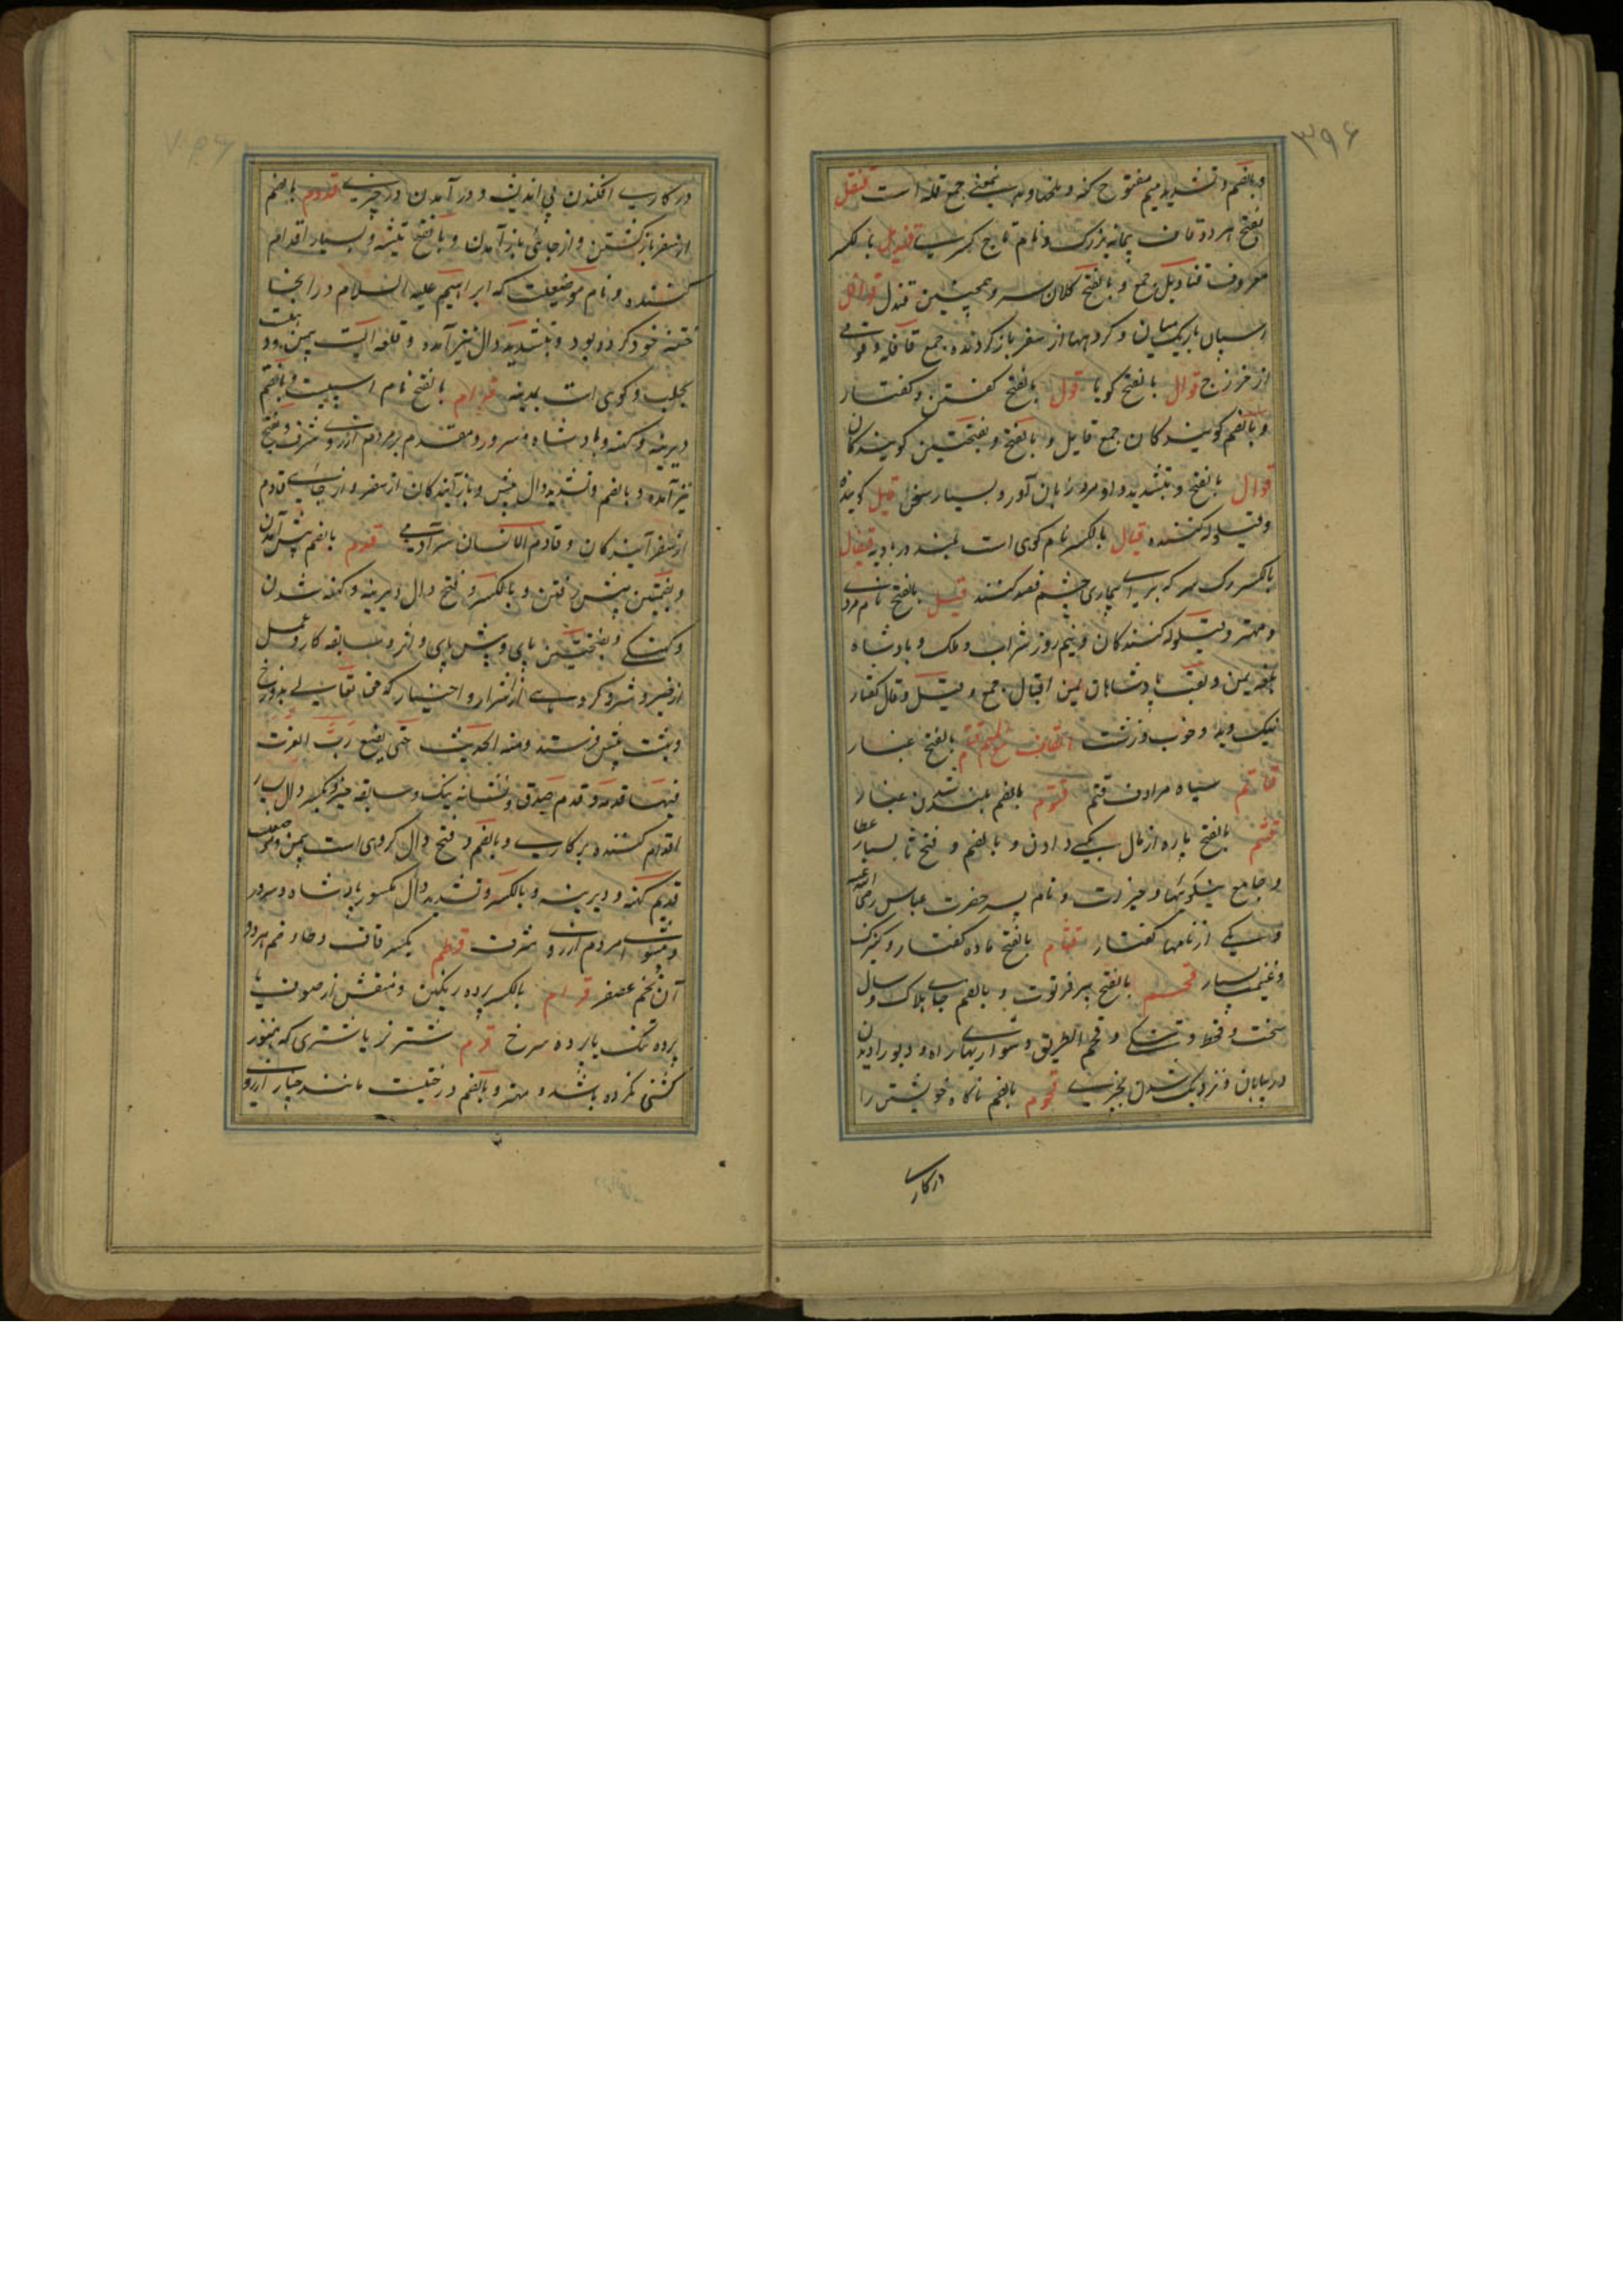 ۳۹۶
و بالضم و تشدید میم مفتوح کنه و بمعنی جمع قله است قنقل
بفتح هر دو قاف پیمانه بزرگ و نام تاج کسری قندیل بالکسر
معروف قنادیل جمع و بالفتح کلان سر و همچنین قندل قوافل
اسپان باریک میان و گروهها از سفر باز گردنده جمع قافله و قومی
از خزرج قوال بالفتح گویا قول بالفتح گفتن و گفتار
و بالضم گویندگان جمع قایل و بالفتح و بفتحتین گویندگان
قوال بالفتح و بتشدید واو مرد زبان آور و بسیار سخن قیل گوینده
و قیلوله کننده قیال بالکسر نام کوهی است بلند در بادیه قیفال
بالکسر رگ سر که برای بیماری چشم فصد کنند قیل بالفتح نام مردی
و مهتر و قیلوله کنندگان و نیم روز شراب و ملک و پادشاه
حمیر یمن و لقب پادشاهان یمن اقیال جمع و قیل و قال گفتار
نیک و بد و خوب و زشت القاف مع المیم قتام بالفتح غبار
قاتم سیاه مرادف قتم قتوم بالضم بلند شدن غبار
قثم بالفتح پاره از مال بکسی دادن و بالضم و فتح ثا بسیار عطا
و جامع نیکوئیها و خیرات و نام پسر حضرت عباس رضی الله عنه
و یکی از نامها کفتار قثام بالفتح ماده کفتار و کنیزک
و غنیمت بسیار قحم بالفتح پیر فرتوت و بالضم جای هلاک و سال
سخت و قحط و تشنگی و قحم الطریق دشواریهای راه و دیو رادیدن
در بیابان و نزدیک شدن بچیزی قحوم بالضم ناگاه خویشتن را
در کاری
در کاری افکندن بی اندیشه و در آمدن در چیزی قدوم بالضم
از سفر بازگشتن و از جائی باز آمدن و بالفتح تیشه و بسیار اقدام
کننده و نام موضعیست که ابراهیم علیه السلام در آنجا
ختنه خود کرده بود و بتشدید دال نیز آمده و قلعه ایست بیمن و دیه ایست
بحلب و کوهی است بمدینه قدام بالفتح نام اسپیست و بالضم
دیرینه و کهنه و پادشاه و سرور و مقدم بر مردم از روی شرف و بفتح
نیز آمده و بالضم و تشدید دال پیش و باز آیندگان از سفر و از جای قادم
از سفر آیندگان و قادم الانسان سر آدمی قدم بالضم پیش آمدن
و بضمتین پیش رفتن و بالکسر و فتح دال دیرینه و کهنه شدن
و کهنگی و بفتحتین پای و پیش پای و اثر و سابقه کار و عمل
از خیر و شر و گروهی از اشرار و اخیار که حق تعالی بدوزخ
و بهشت پیش فرستد و منه الحدیث حتی یضع رب العزت
فیها قدمه و قدم صدق و نشانه نیک و سابقه خیر و بکسر دال بسیار
اقدام کننده بر کاری و بالضم و فتح دال گروهی است بیمن و موضعی
قدیم کهنه و دیرینه و بالکسر و تشدید دال مکسور پادشاه و سرور
و پیشوای مردم از روی شرف قرطم بکسر قاف و طا و ضم هر دو
آن تخم عصفر قرام بالکسر پرده رنگین و منقش از صوف یا
پرده تنک یا پرده سرخ قرم شتر نر یا شتری که هنوز
کشنی نکرده باشد و مهتر و بالضم درختیست مانند چنار از روی